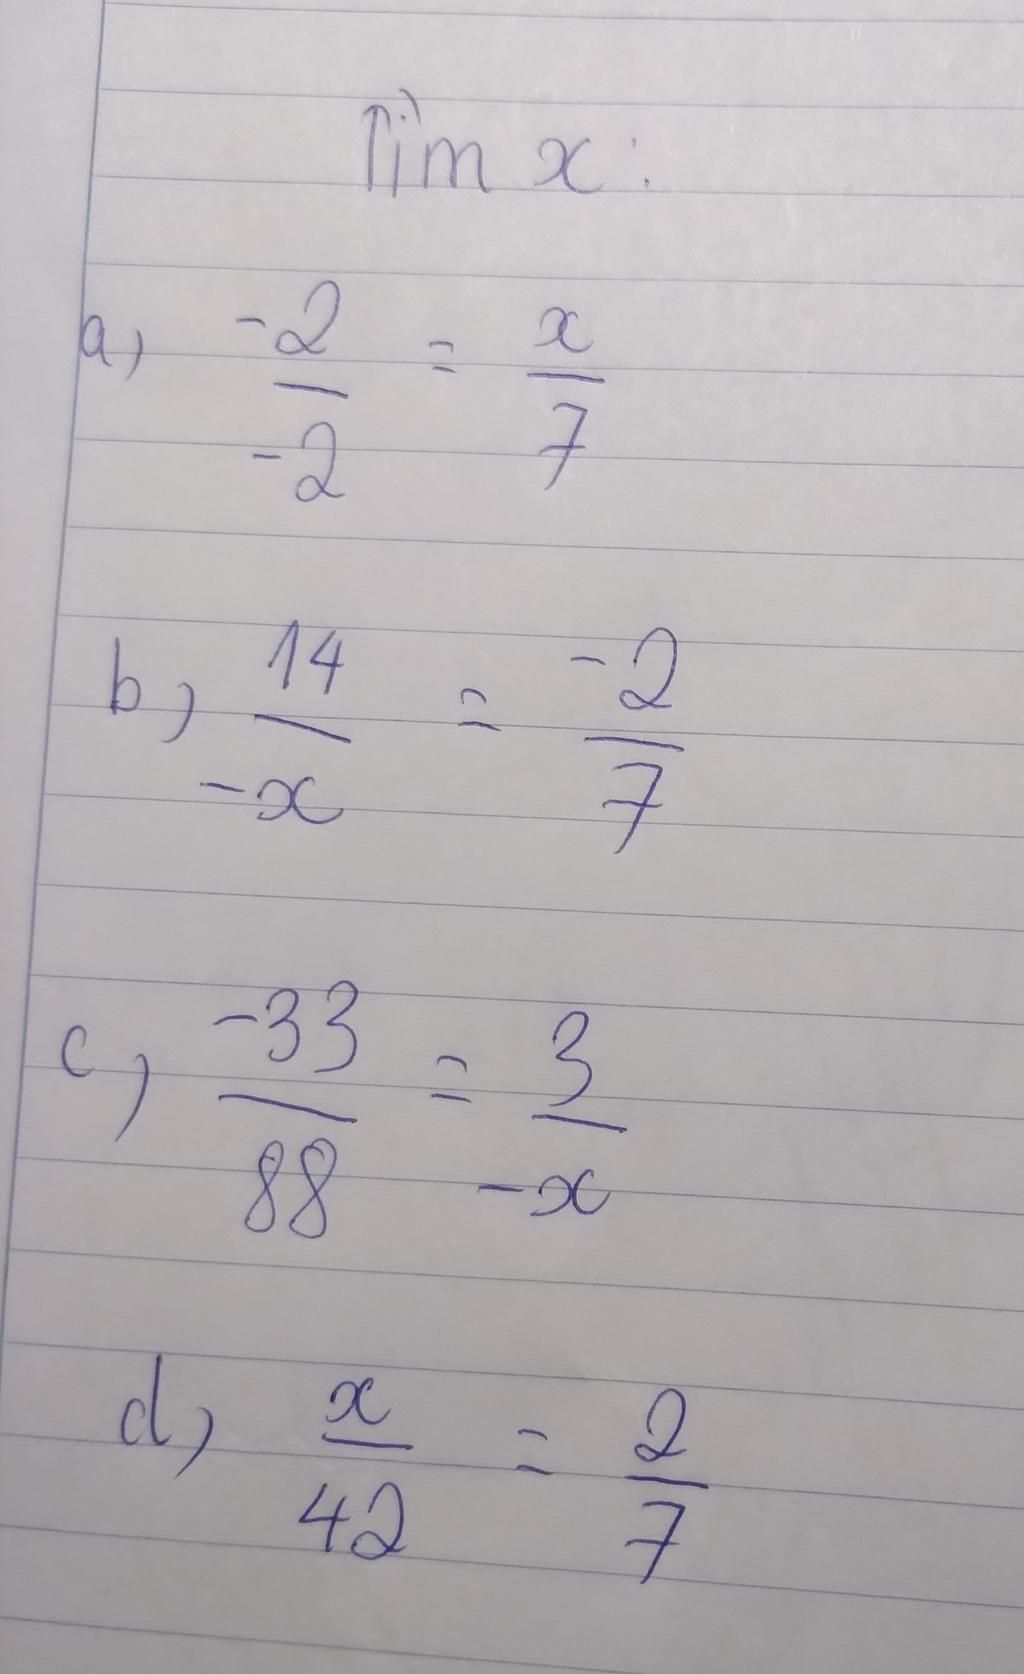 Tìm x:
a, -2/-2 = x/7
b, 14/-x = -2/7
c, -33/88 = 3/-x
d, x/42 = 2/7